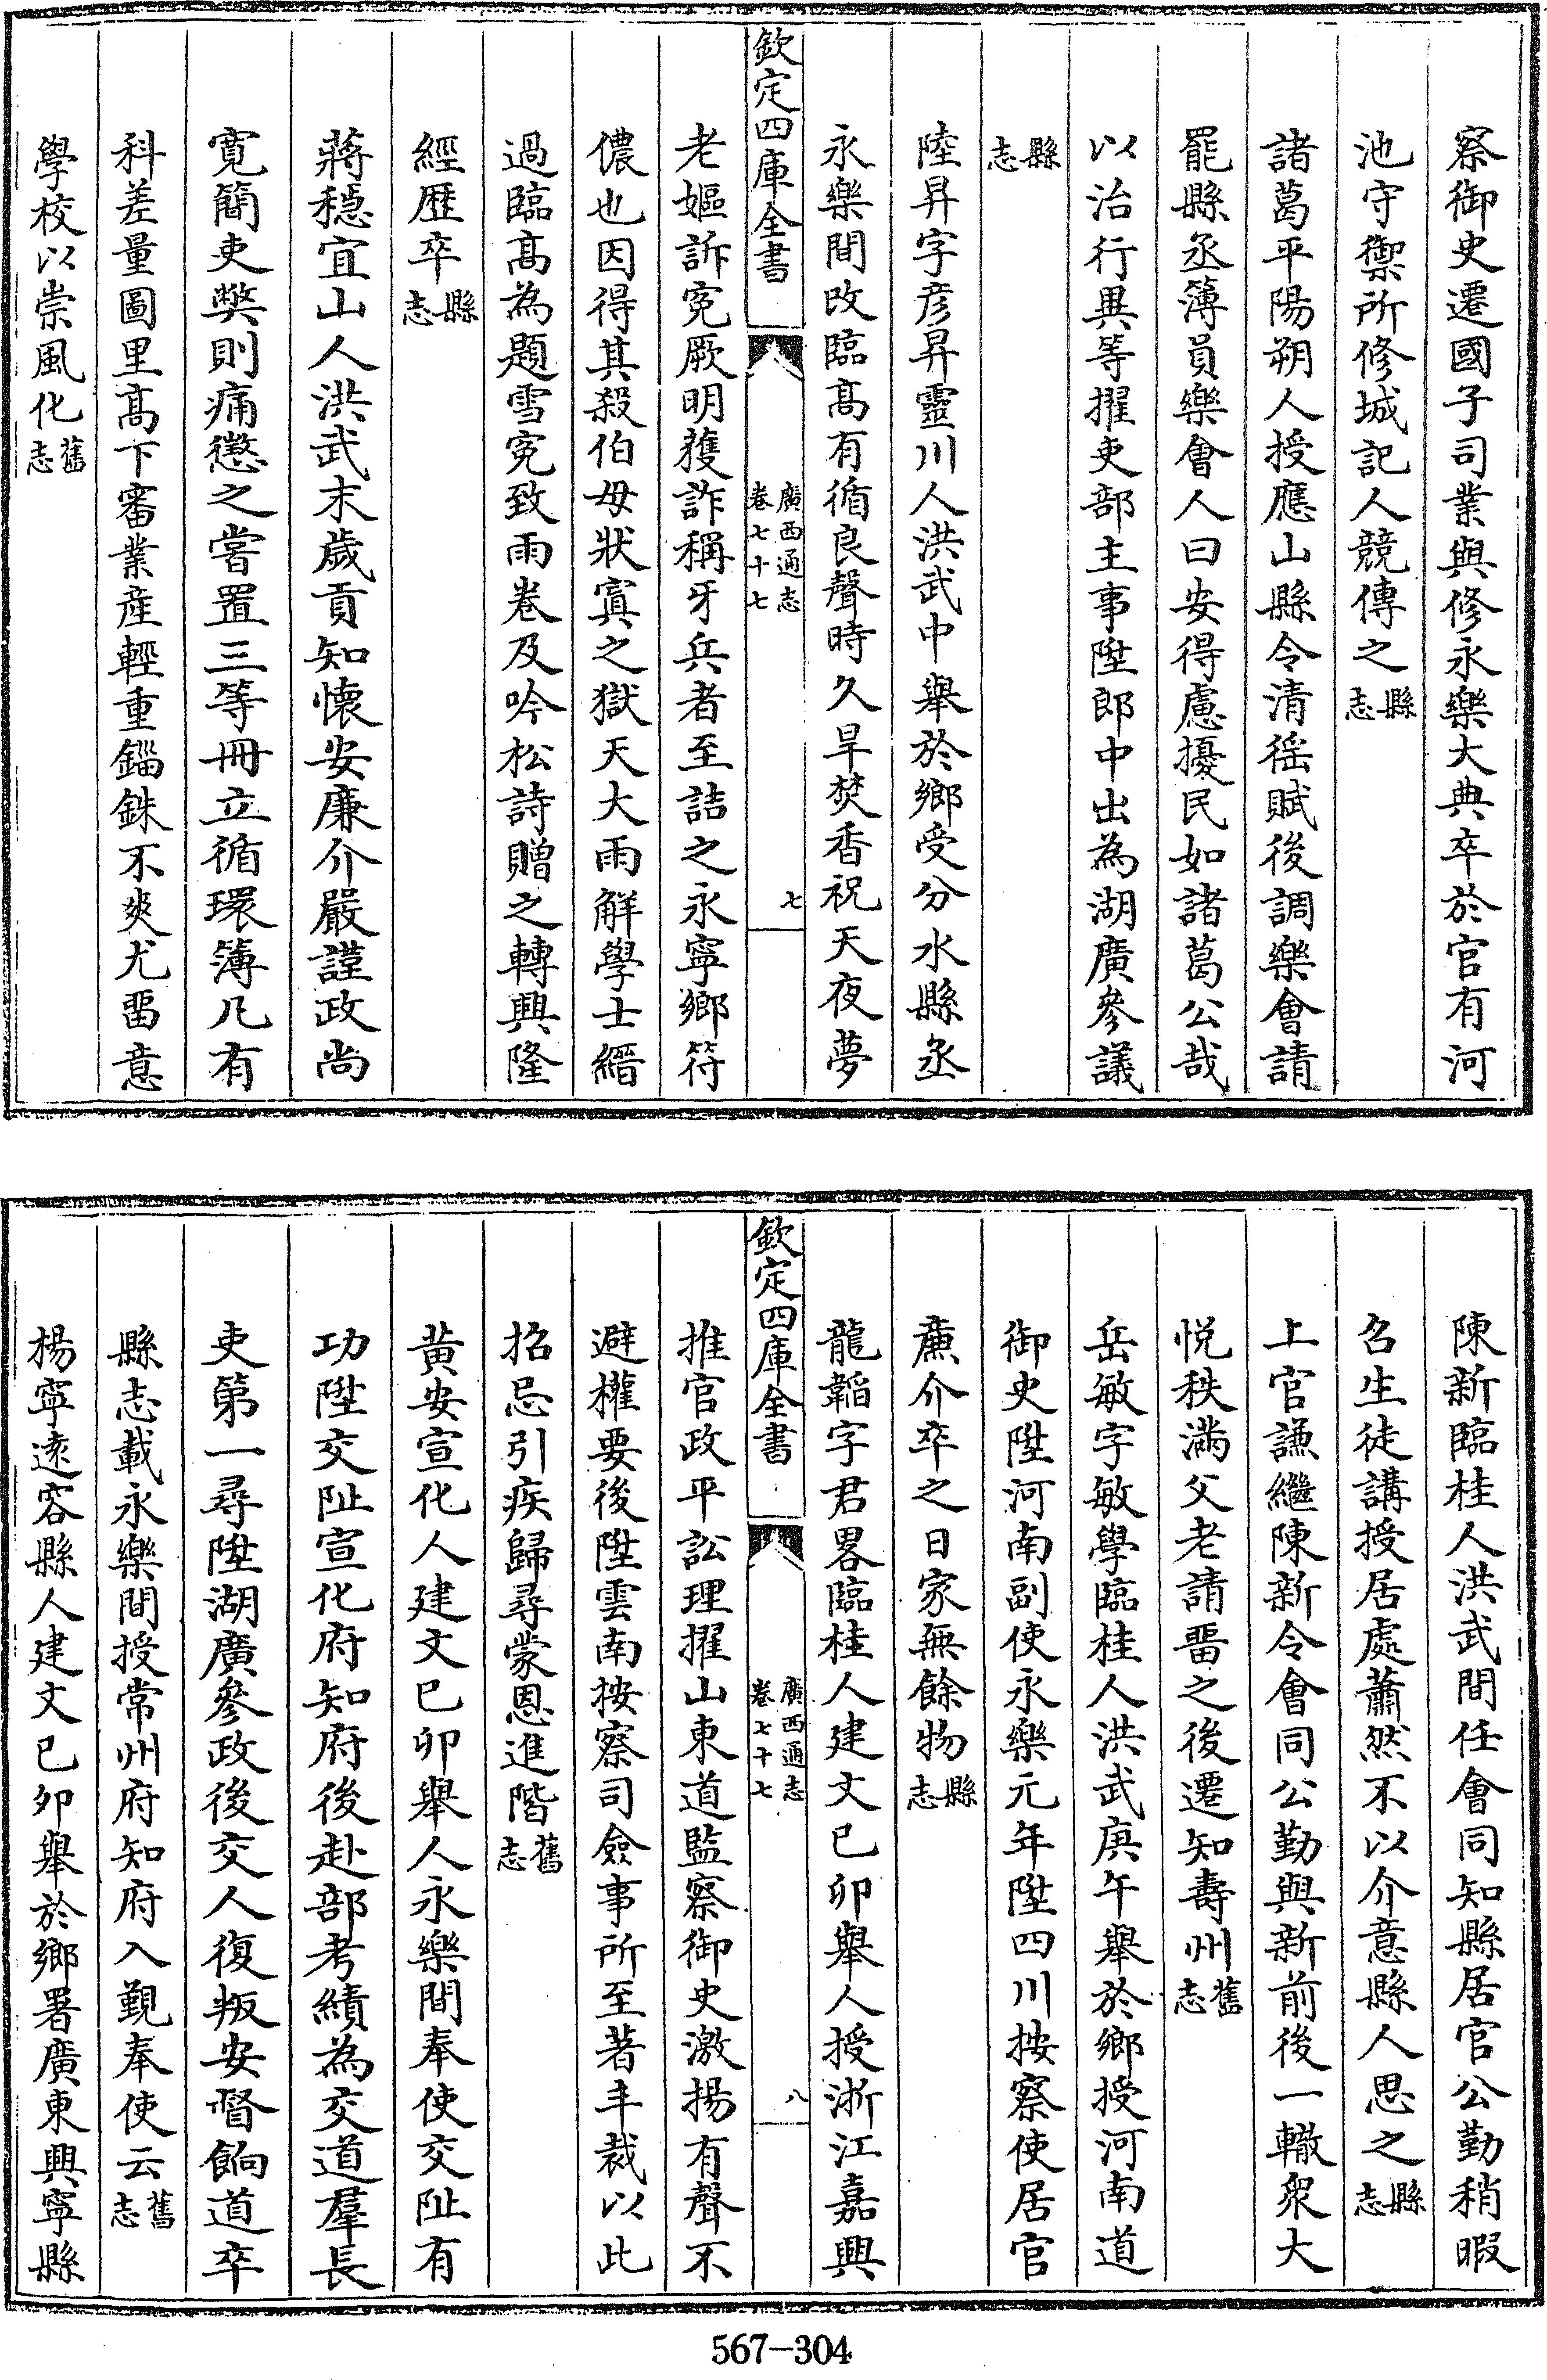 察御史遷國子司業與修永樂大典卒於官有河
池守禦所修城記人競傳之縣志
諸葛平陽朔人授應山縣令清徭賦後調樂會請
罷縣丞簿員樂會人曰安得慮擾民如諸葛公哉
以治行異等擢吏部主事陞郎中出為湖廣參議
縣志
陸昇字彦昇靈川人洪武中舉於鄉受分水縣丞
永樂間改臨髙有循良聲時久旱焚香祝天夜夢
欽定四庫全書
廣西通志
卷七十七
七
老嫗訴寃厥明獲詐稱牙兵者至詰之永寧鄉符
儂也因得其殺伯母狀寘之獄天大雨解學士縉
過臨髙為題雪寃致雨卷及吟松詩贈之轉興隆
經歴卒縣志
蔣穏宜山人洪武末歲貢知懷安廉介嚴謹政尚
寛簡吏獘則痛懲之嘗置三等冊立循環簿凡有
科差量圖里髙下審業産輕重錙銖不爽尤畱意
學校以崇風化舊志
陳新臨桂人洪武間任會同知縣居官公勤稍暇
名生徒講授居處蕭然不以介意縣人思之縣志
上官謙繼陳新令會同公勤與新前後一轍衆大
悅秩滿父老請畱之後遷知壽州舊志
岳敏字敏學臨桂人洪武庚午舉於鄉授河南道
御史陞河南副使永樂元年陞四川按察使居官
亷介卒之日家無餘物縣志
龍韜字君畧臨桂人建文已卯舉人授浙江嘉興
欽定四庫全書
廣西通志
卷七十七
八
推官政平訟理擢山東道監察御史激揚有聲不
避權要後陞雲南按察司僉事所至著丰裁以此
招忌引疾歸尋蒙恩進階舊志
黄安宣化人建文已卯舉人永樂間奉使交阯有
功陞交阯宣化府知府後赴部考績為交道羣長
吏第一尋陞湖廣參政後交人復叛安督餉道卒
縣志載永樂間授常州府知府入覲奉使云舊志
楊寧逺容縣人建文已夘舉於鄉署廣東興寧縣
567-304